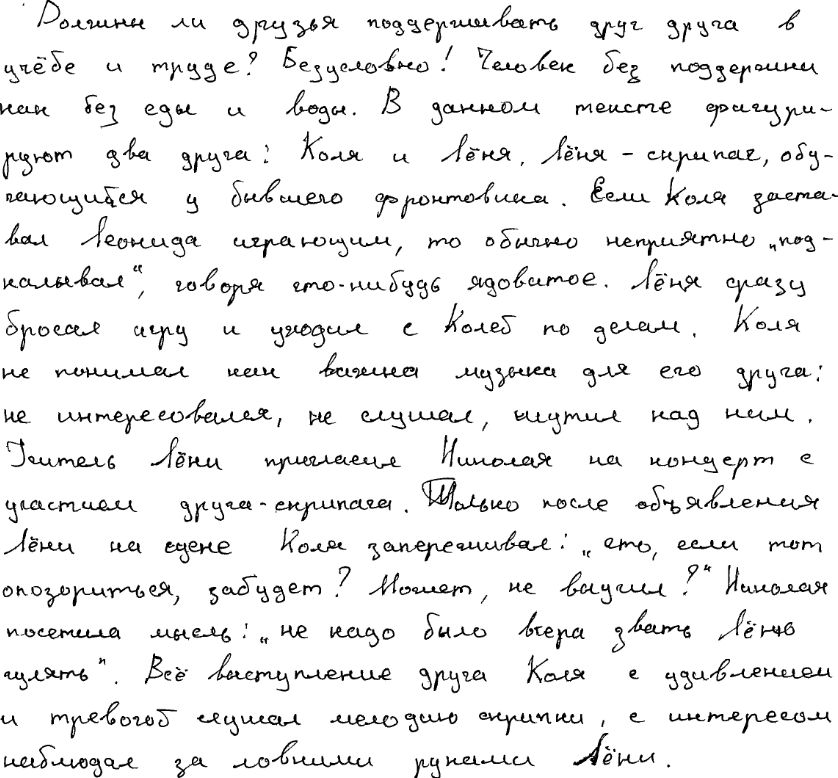 Должны ли друзья поддерживать друг друга в
учёбе и труде? Безусловно! Человек без поддержки
как без еды и воды. В данном тексте фигури-
руют два друга: Коля и Лёня. Лёня - скрипач, обу-
чающийся у бывшего фронтовика. Если Коля заста-
вал Леонида играющим, то обычно неприятно „под-
калывал“, говоря что-нибудь ядовитое. Лёня сразу
бросал игру и уходил с Колей по делам. Коля
не понимал как важна музыка для его друга:
не интересовался, не слушал, шутил над ним.
Учитель Лёни пригласил Николая на концерт с
участием друга-скрипача. Только после объявления
Лёни на сцене Коля запереживал: „что, если тот
опозориться, забудет? Может, не выучил?“ Николая
посетила мысль: „не надо было вчера звать Лёню
гулять“. Всё выступление друга Коля с удивлением
и тревогой слушал мелодию скрипки, с интересом
наблюдал за ловкими руками Лёни.